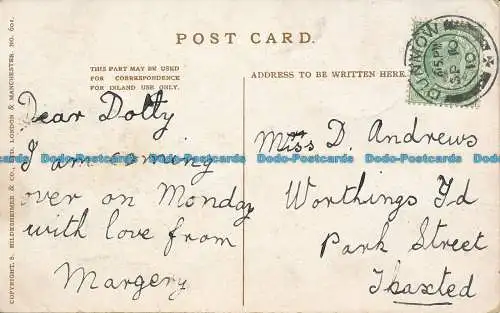 POST CARD.
THIS PART MAY BE USED
FOR CORRESPONDENCE
FOR INLAND USE ONLY.
ADDRESS TO BE WRITTEN HERE.
Dear Dolly
I am coming
over on Monday
with love from
Margery
Miss D. Andrews
Worthings Yd
Park Street
Thaxted
DUNMOW
SP 10
10
COPYRIGHT. S. HILDESHEIMER & CO., LTD. LONDON & MANCHESTER. NO. 601.
Dodo-Postcards Dodo-Postcards Dodo-Postcards Dodo-Postcards Dodo-Postcards